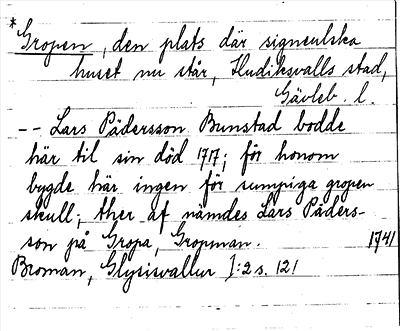 *Gropen, den plats där signeulska
huset nu står, Hudiksvalls stad,
Gävleb. l.
-- Lars Pädersson Bunstad bodde
här til sin död 1717; för honom
bygde här ingen för sumpiga gropen
skull; ther af nämdes Lars Päders-
son på Gropa, Gropman. 1741
Broman, Glysisvallur I:2 s. 121